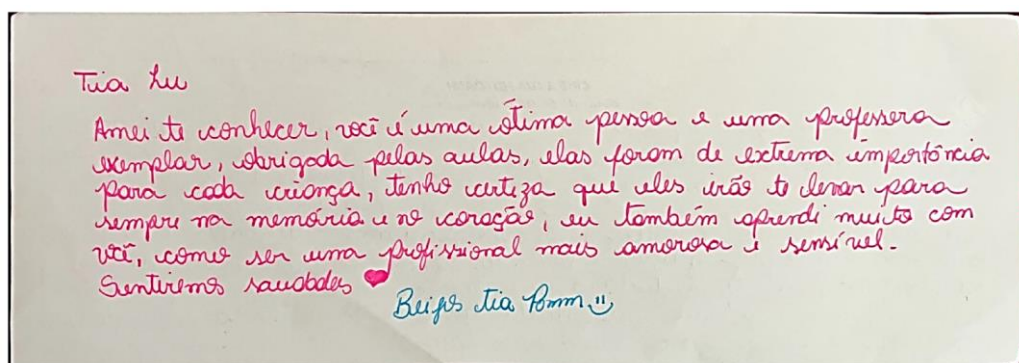 Tia Lu
Amei te conhecer, você é uma ótima pessoa e uma professora
exemplar, obrigada pelas aulas, elas foram de extrema importância
para cada criança, tenho certeza que eles irão te levar para
sempre na memória e no coração, eu também aprendi muito com
você, como ser uma profissional mais amorosa e sensível.
Sentiremos saudades ❤
Beijos tia